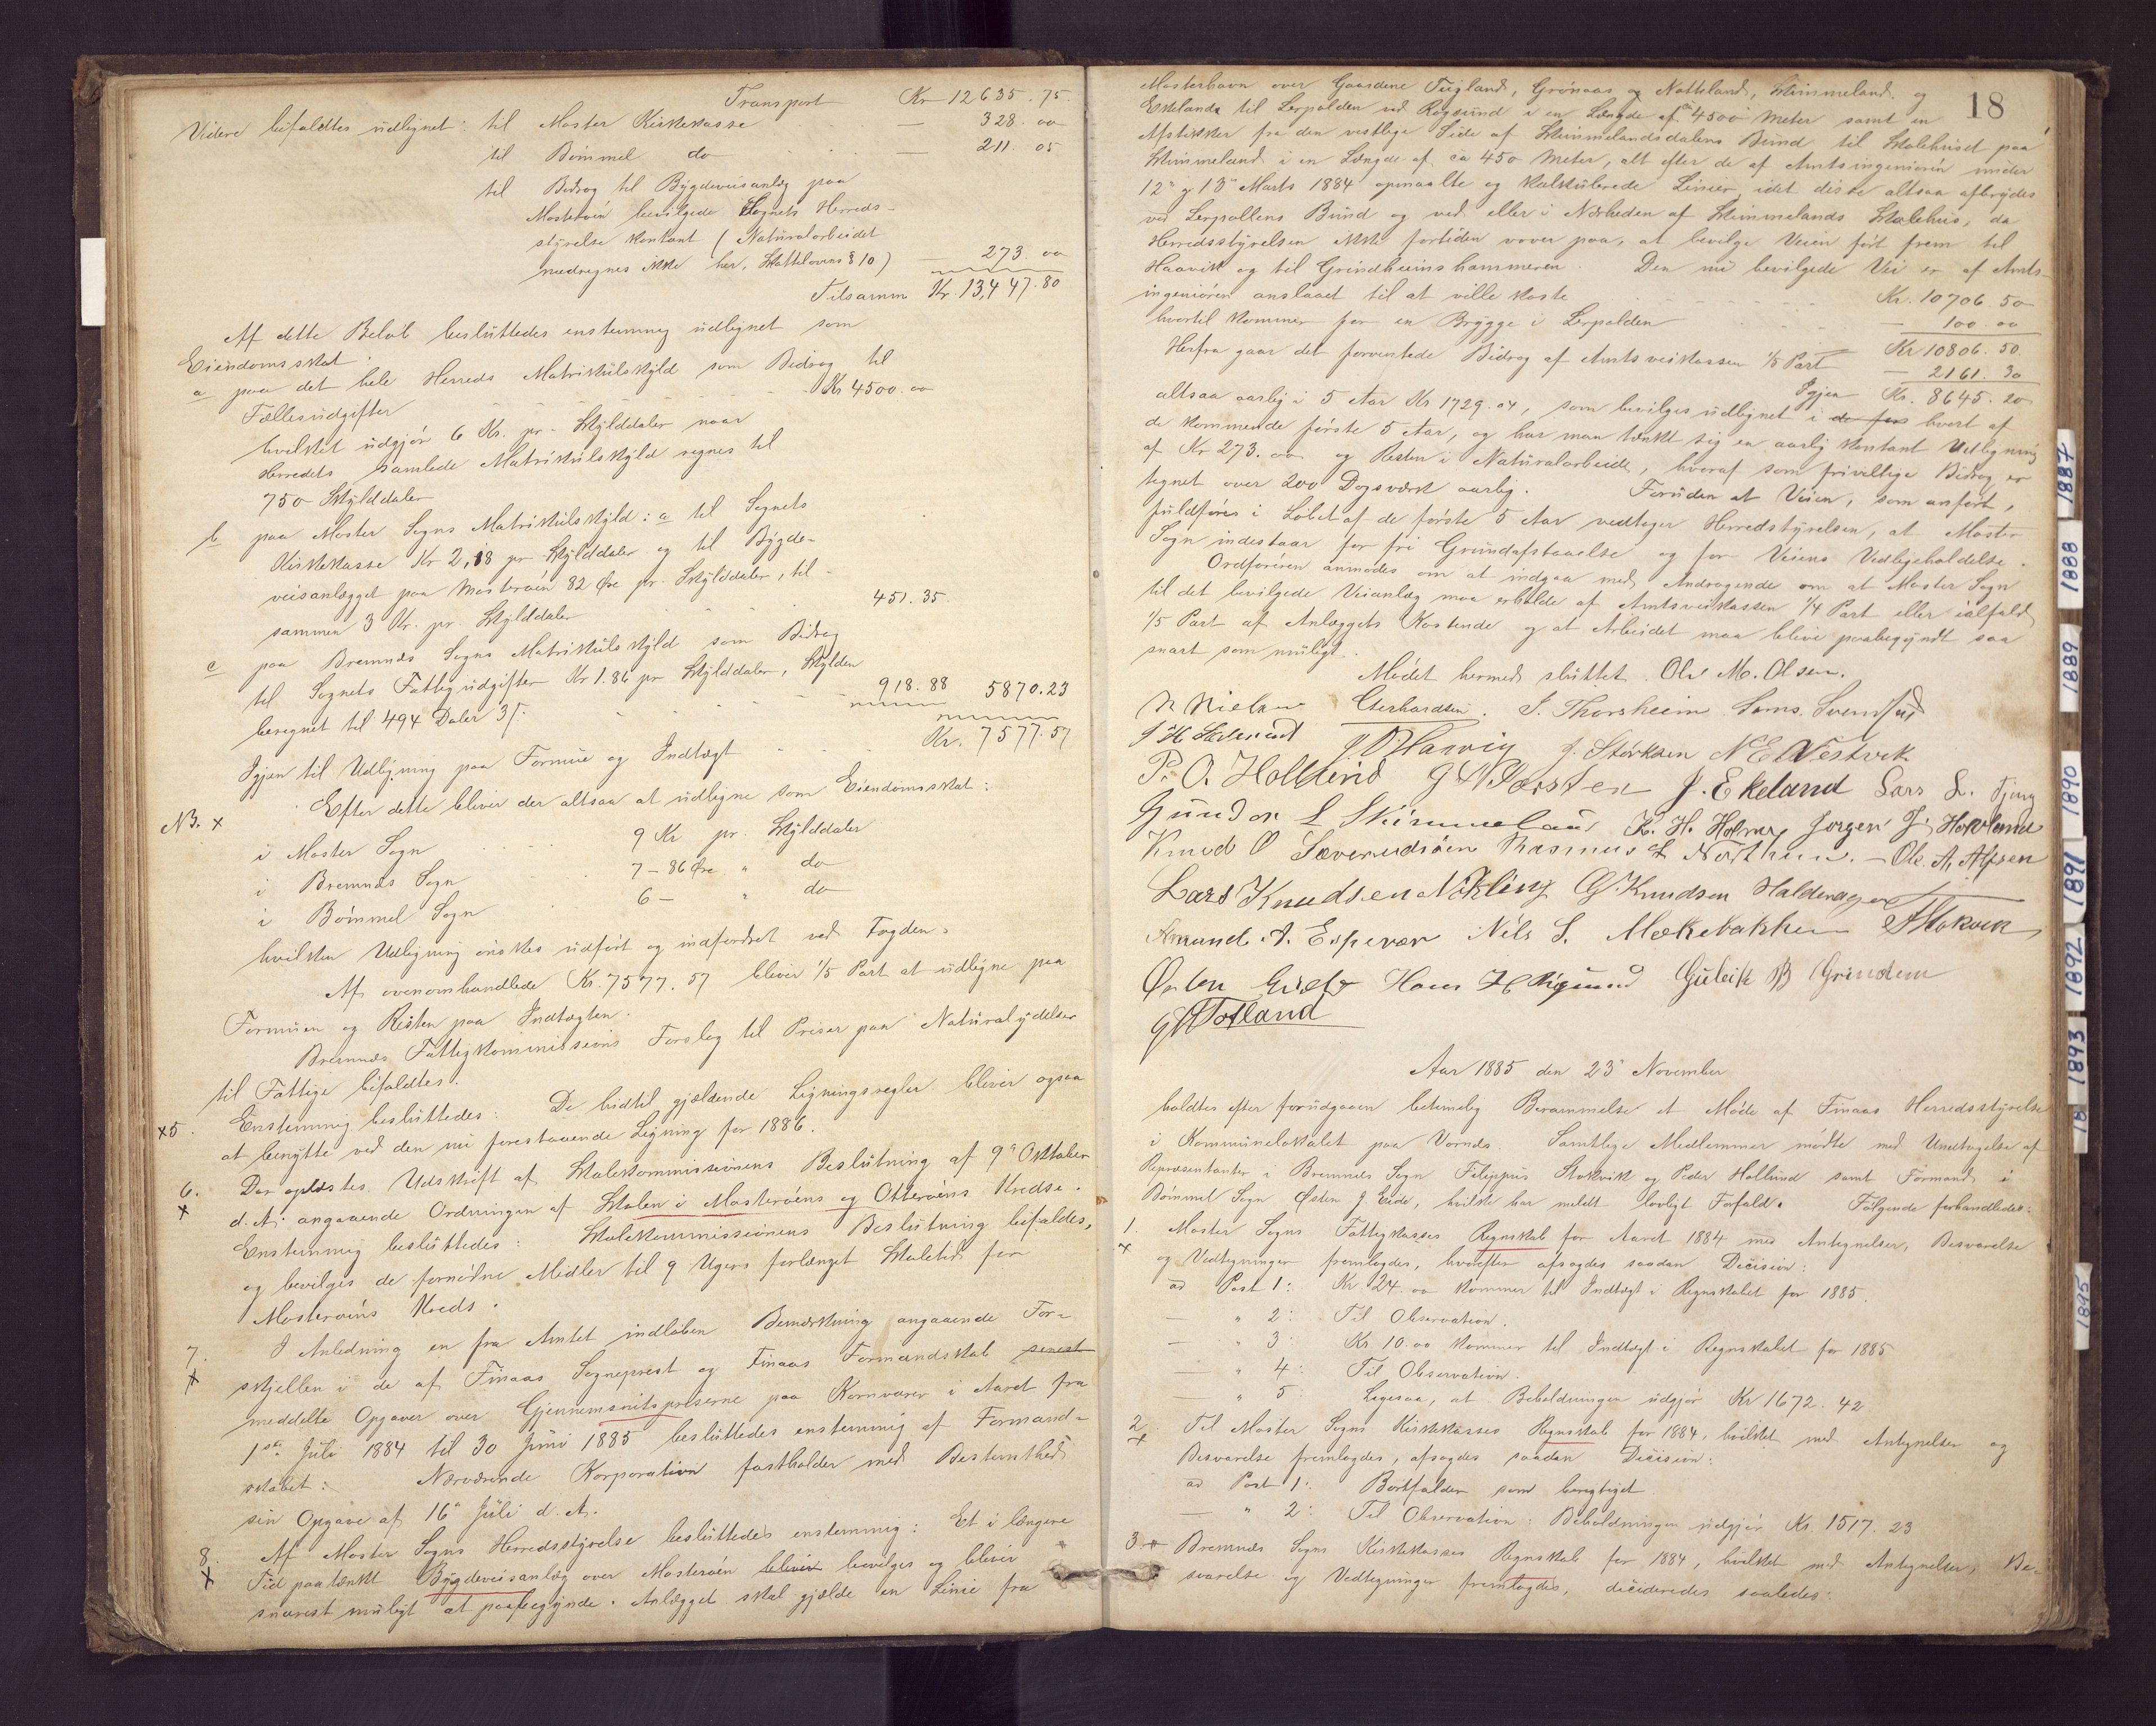 Transport Kr 12635.75
Videre bifaldtes udlignet: til Moster Kirkekasse — 328.00
til Bömmel do — 211.05
til Bidrag til Bygdeveisanlæg paa
Mosteröen bevilgede Sognets Herreds-
styrelse kontant (Naturalarbeidet
medregnes ikke her, Skattelovens § 10) — 273.00
Tilsamm Kr. 13,447.80
Af dette Beløb besluttedes enstemmig udlignet som
Eiendomsskat:
a paa det hele Herreds Matrikulskyld som Bidrag til
Fællesudgifter Kr 4500.00
hvilket udgjør 6 Kr. pr. Skylddaler naar
Herredets samlede Matrikulskyld regnes til
750 Skylddaler
b paa Moster Sogns Matrikulskyld: a til Sognets
Kirkekasse Kr 2,18 pr Skylddaler og til Bygde-
veisanlægget paa Mosteröen 82 Øre pr. Skylddaler, til-
sammen 3 Kr. pr. Skylddaler 451.35
c paa Bremnæs Sogns Matrikulskyld som Bidrag
til Sognets Fattigudgifter Kr 1.86 pr Skylddaler, Skylden
beregnet til 494 Daler 918.88 5870.23
Igjen til Udligning paa Formue og Indtægt Kr. 7577.57
NB. x Efter dette bliver der altsaa at udligne som Eiendomsskat:
i Moster Sogn 9 Kr pr. Skylddaler
i Bremnæs Sogn 7 - 86 Øre " do
i Bömmel Sogn 6 - " do
hvilken Udligning önskes udført og indfordret ved Fogden.
Af ovenomhandlede Kr. 7577.57 bliver 1/5 Part at udligne paa
Formuen og Resten paa Indtægten.
Bremnæs Fattigkommissions Forslag til Priser paa Naturalydelser
til Fattige bifaldtes.
x5. Enstemmig besluttedes: De hidtil gjældende Ligningsregler bliver ogsaa
at benytte ved den nu forestaaende Ligning for 1886.
6. x Der oplæstes Udskrift af Skolekommissionens Beslutning af 9de Oktober
d. A. angaaende Ordningen af Skolen i Mosteröens og Otteröens Kredse.
Enstemmig besluttedes: Skolekommissionens Beslutning bifaldes,
og bevilges de fornødne Midler til 9 Ugers forlænget Skoletid for
Mosteröens Kreds.
7. x I Anledning en fra Amtet indløben Bemærkning angaaende For-
skjellen i de af Finaas Sogneprest og Finaas Formandskab senest
meddelte Opgaver over Gjennemsnitspriserne paa Kornvarer i Aaret fra
1ste Juli 1884 til 30 Juni 1885 besluttedes enstemmig af Formand-
skabet: Nærværende Korporation fastholder med Bestemthed
sin Opgave af 16de Juli d. A.
8. x Af Moster Sogns Herredsstyrelse besluttedes enstemmig: Et i længere
Tid paatænkt Bygdeveisanlæg over Mosteröen bliver bevilges og bliver
snarest muligt at paabegynde. Anlægget skal gjælde en Linie fra
18
Mosterhavn over Gaardene Tugland, Grönaas og Notteland, Skimmeland og
Ekelands til Lerpolden ved Røgsund i en Længde af ca 4500 Meter samt en
Afstikker fra den vestlige Side af Skimmelandsdalens Bund til Skolehuset paa
Skimmeland i en Længde af ca 450 Meter, alt efter de af Amtsingeniören under
12te og 13de Marts 1884 opmaalte og kalkulerede Linier, idet disse altsaa afbrydes
ved Lerpollens Bund og ved eller i Nærheden af Skimmelands Skolehus, da
Herredsstyrelsen ikke fortiden vover paa, at bevilge Veien ført frem til
Haavik og til Grindheimshammeren. Den nu bevilgede Vei er af Amts-
ingeniören anslaaet til at ville koste Kr. 10706.50
hvortil kommer for en Brygge i Lerpolden — 100.00
Kr 10806.50
Herfra gaar det forventede Bidrag af Amtsveikassen 1/5 Part — 2161.30
Igjen Kr. 8645.20
altsaa aarlig i 5 Aar Kr 1729.04, som bevilges udlignet i de før hvert af
de kommende første 5 Aar, og har man tænkt sig en aarlig kontant Udligning
af Kr 273.00 og Resten i Naturalarbeide, hvoraf som frivillige Bidrag er
tegnet over 200 Dagsværk aarlig. Foruden at Veien, som anført,
fuldføres i Løbet af de første 5 Aar vedtager Herredstyrelsen, at Moster
Sogn indestaar for fri Grundafstaaelse og for Veiens Vedligeholdelse.
Ordføreren anmodes om at indgaa med Andragende om at Moster Sogn
til det bevilgede Veianlæg maa erholde af Amtsveikassen 1/4 Part eller ialfald
1/5 Part af Anlæggets Kostende og at Arbeidet maa blive paabegyndt saa
snart som muligt.
Mödet hermed sluttet. Ole M. Olsen.
N Nielsen Gerhardsen. I. Thorsheim Sams. Svendsen
J. Størksen N E Vestvik
P. O. Hollund J. Ekeland Lars L.
Gunder L Skimmeland K. H. Jorgen J. Hovland
Knud O Sæverudsöen Rasmus Ole A. Alfsen
Lars Knudsen Økling G. Knudsen Haldorager
Amund A. Espevær Nils S. Mækebakken F Stokvik
Østen Eide Hans H Guleik B Grindem
Totland
Aar 1885 den 23de November
holdtes efter forudgaaen betimelig Berammelse et Møde af Finaas Herredsstyrelse
i Kommunelokalet paa Vornæs. Samtlige Medlemmer mødte med Undtagelse af
Repræsentanter i Bremnæs Sogn Filippus Stokvik og Peder Hollund samt Formand i
Bömmel Sogn Østen J. Eide, hvilke har meldt lovligt Forfald. Følgende forhandledes:
1. x Moster Sogns Fattigkasses Regnskab for Aaret 1884 med Antegnelser, Besvarelse
og Vedtegninger fremlagdes, hvorefter afsagdes saadan Decision:
ad Post 1: Kr 24.00 kommer til Indtægt i Regnskabet for 1885.
— " 2: Til Observation.
— " 3: Kr 10.00 kommer til Indtægt i Regnskabet for 1885
— " 4: Til Observation.
— " 5: Ligesaa, at Beholdningen udgjør Kr 1672.42
2. x Til Moster Sogns Kirkekasses Regnskab for 1884, hvilket med Antegnelser og
Besvarelse fremlagdes, afsagdes saadan Decision:
ad Post 1: Bortfalder som berigtiget.
— " 2: Til Observation: Beholdningen udgjør Kr. 1517.23
3 x Bremnæs Sogns Kirkekasses Regnskab for 1884, hvilket med Antegnelser, Be-
svarelse og Vedtegninger fremlagdes, decideredes saaledes:
1887
1888
1889
1890
1891
1892
1893
18
1895